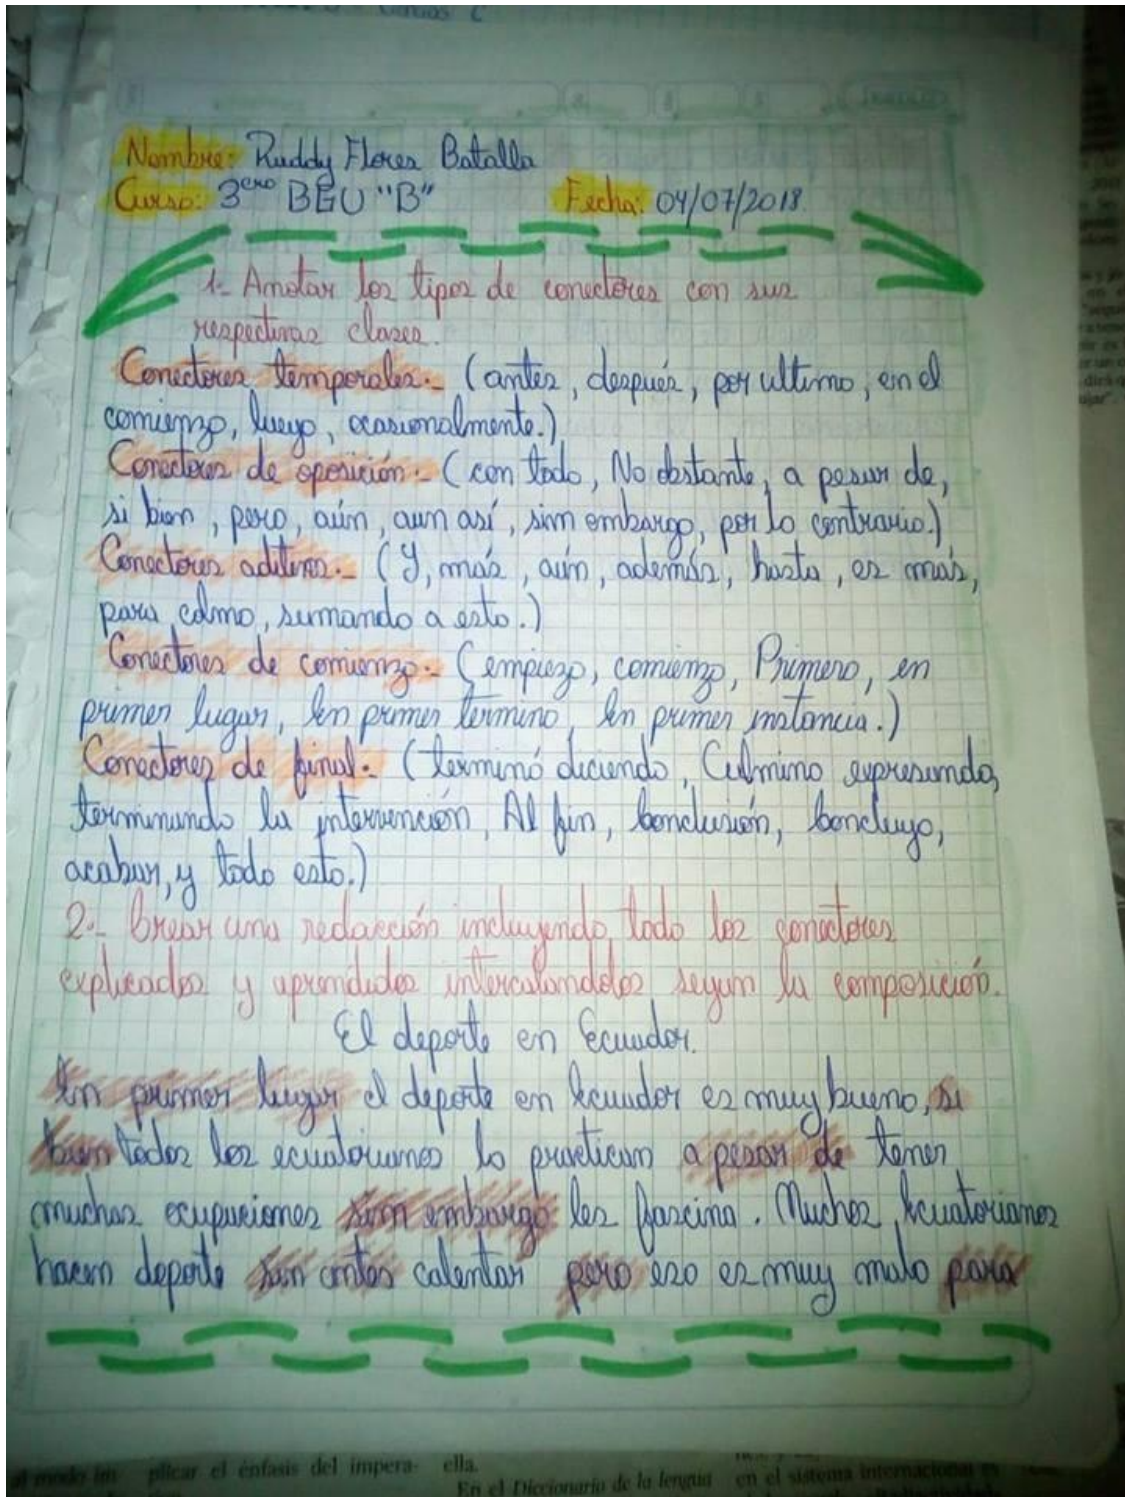 Nombre: Ruddy Flores Batalla
Curso: 3ero BGU "B" Fecha: 04/07/2018.
1.- Anotar los tipos de conectores con sus
respectivas clases.
Conectores temporales.- (antes, después, por ultimo, en el
comienzo, luego, ocasionalmente.)
Conectores de oposición.- (con todo, No obstante, a pesar de,
si bien, pero, aún, aun así, sim embargo, por lo contrario.)
Conectores aditivos.- (Y, más, aún, además, hasta, es más,
para colmo, sumando a esto.)
Conectores de comienzo.- (empiezo, comienzo, Primero, en
primer lugar, En primer termino, En primer instancia.)
Conectores de final.- (terminó diciendo, Culmino expresando,
terminando la intervención, Al fin, Conclusión, Concluyo,
acabar, y todo esto.)
2.- Crear una redacción incluyendo todo los conectores
explicados y aprendidos intercalandolos segun la composición.
El deporte en Ecuador.
En primer lugar el deporte en Ecuador es muy bueno, si
bien todos los ecuatorianos lo practican a pesar de tener
muchas ocupaciones sim embargo les fascina. Muchos Ecuatorianos
hacen deporte sin antes calentar pero eso es muy malo para
plicar el énfasis del impera- ella.
En el Diccionario de la lengua en el sistema internacional